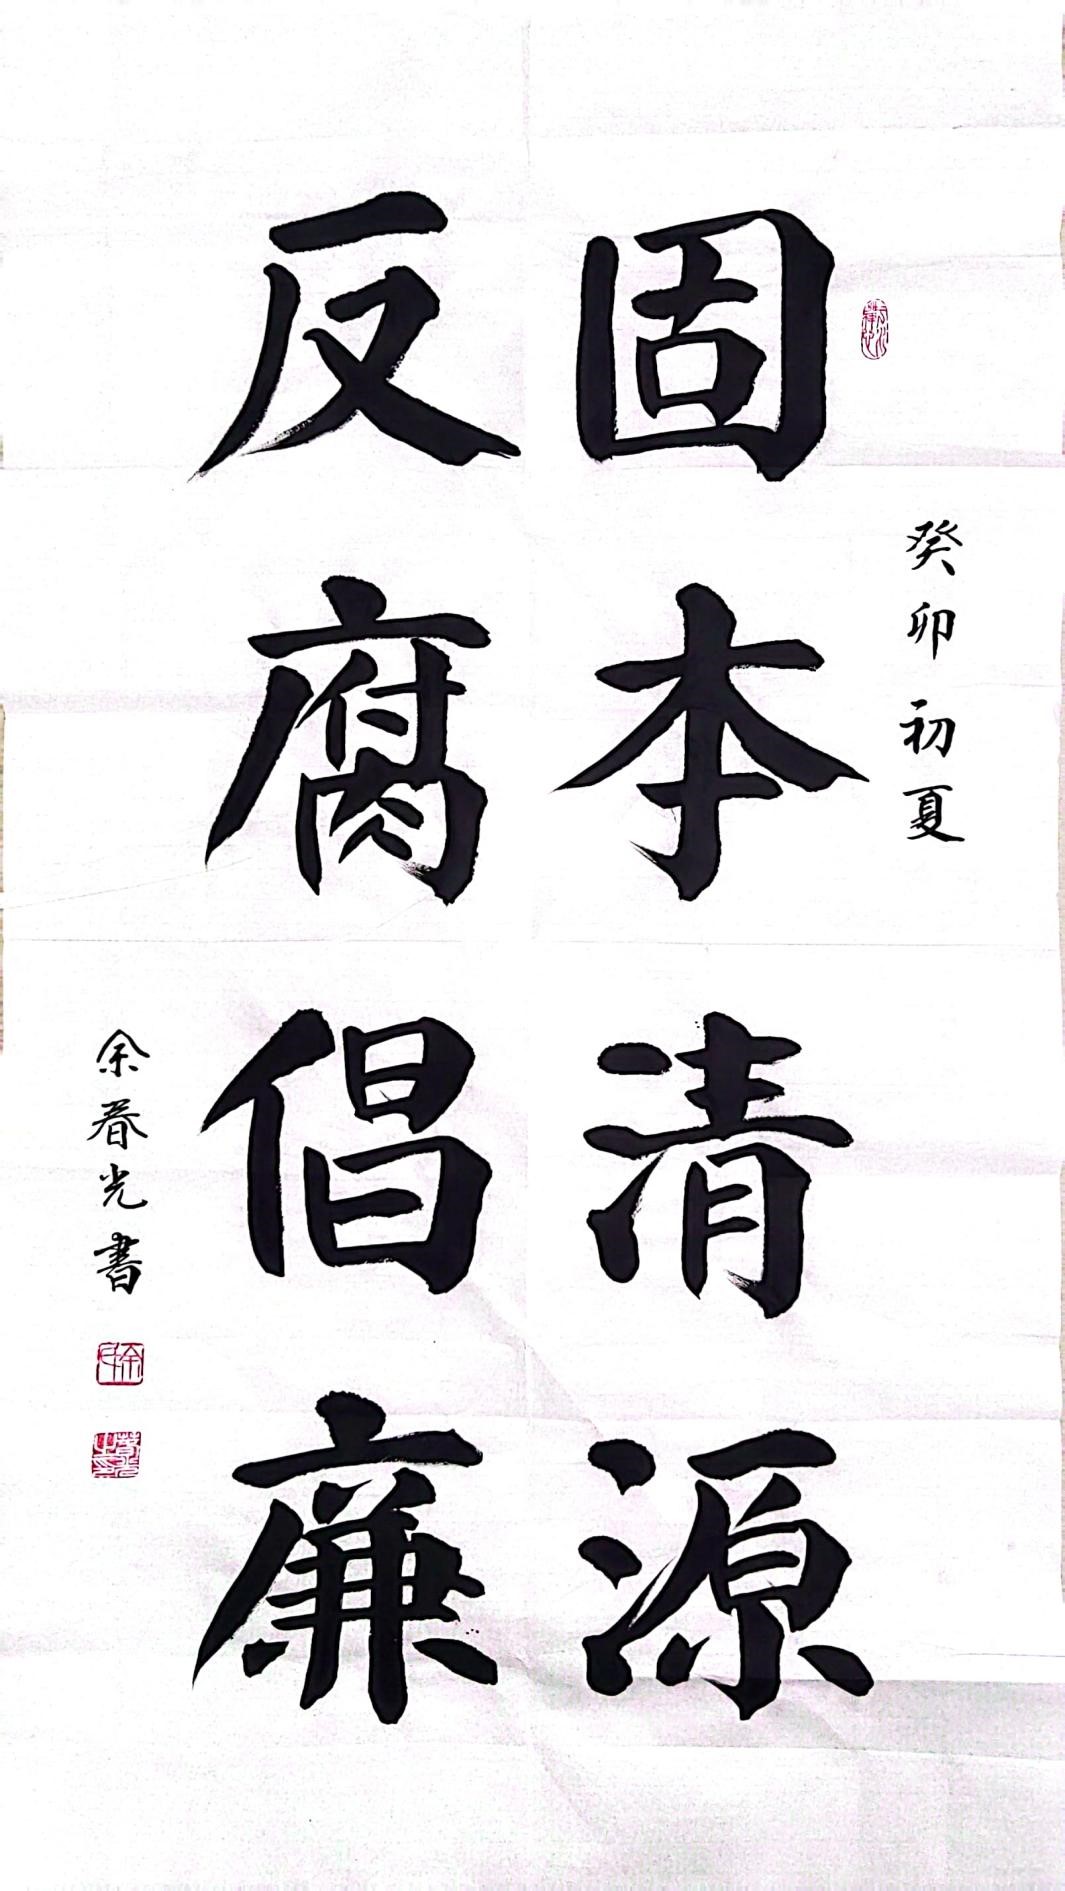 癸卯初夏
固本清源
反腐倡廉
余春光書